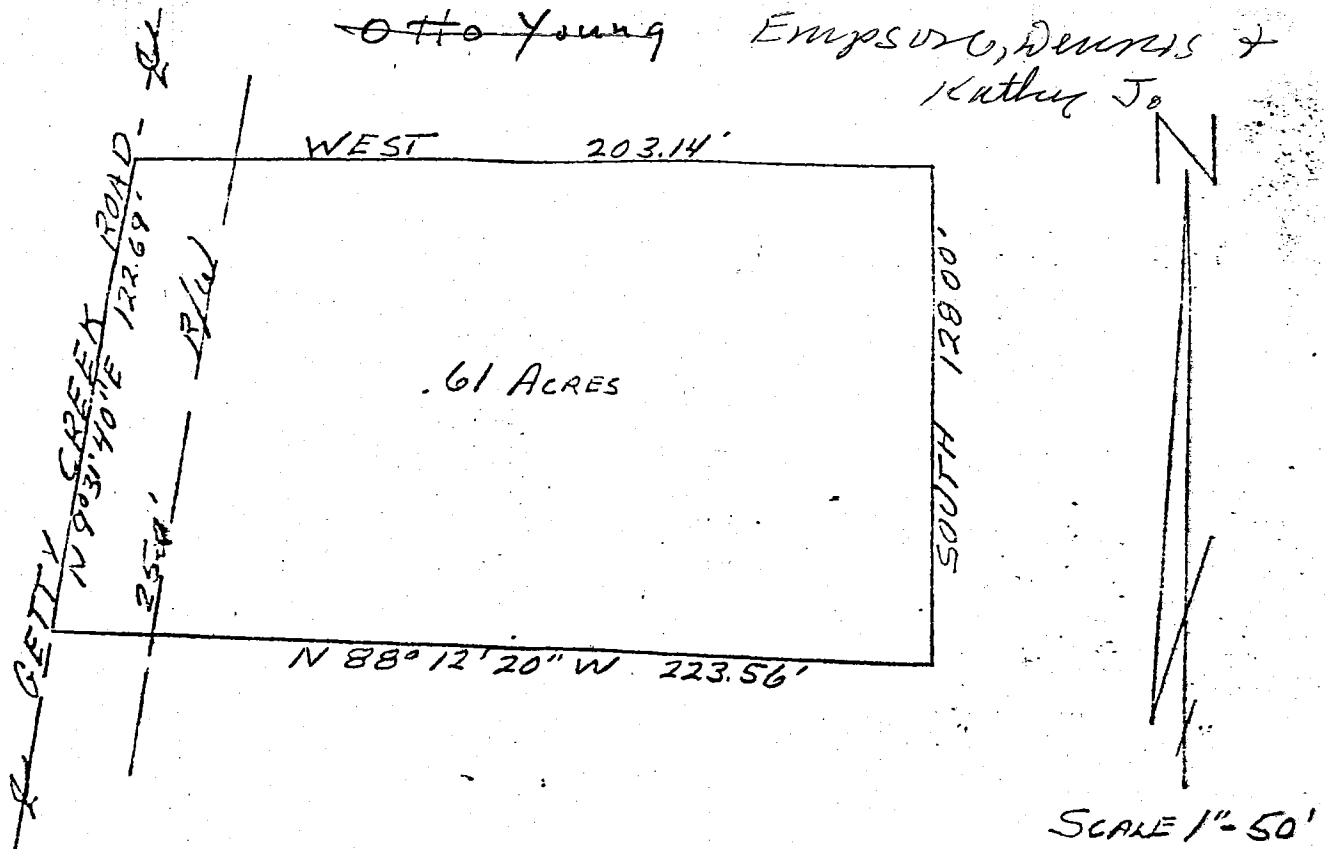 Otto Young
Dennis &
Kathy Jo
N
WEST 203.14'
℄ GETTY CREEK ROAD - ℄
N 9°31'40"E 122.69'
R/W
25'
.61 ACRES
SOUTH 128.00'
N 88°12'20"W 223.56'
SCALE 1"-50'